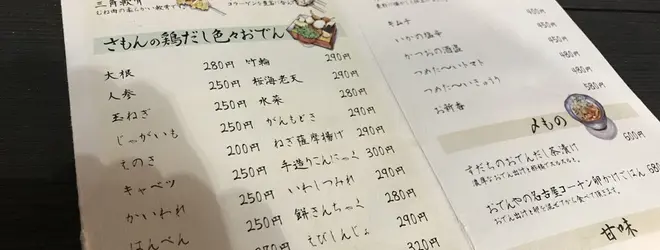 三角軟骨
さもんの鶏だし色々おでん
大根 280円
人参 250円
玉ねぎ 250円
じゃがいも 250円
えのき 200円
キャベツ 250円
かいわれ 250円
はんぺん 250円
竹輪 290円
桜海老天 290円
水菜 250円
がんもどき 290円
ねぎ薩摩揚げ 290円
手造りこんにゃく 300円
いわしつみれ 290円
餅きんちゃく 280円
えびしんじょ 290円
320円
キムチ 450円
いかの塩辛 400円
かつおの酒盗 450円
つめた〜いトマト 480円
つめた〜いきゅうり 480円
お新香 580円
〆もの
すだちのおでんだし茶漬け 600円
おでんやの名古屋コーチン卵かけごはん 680
甘味